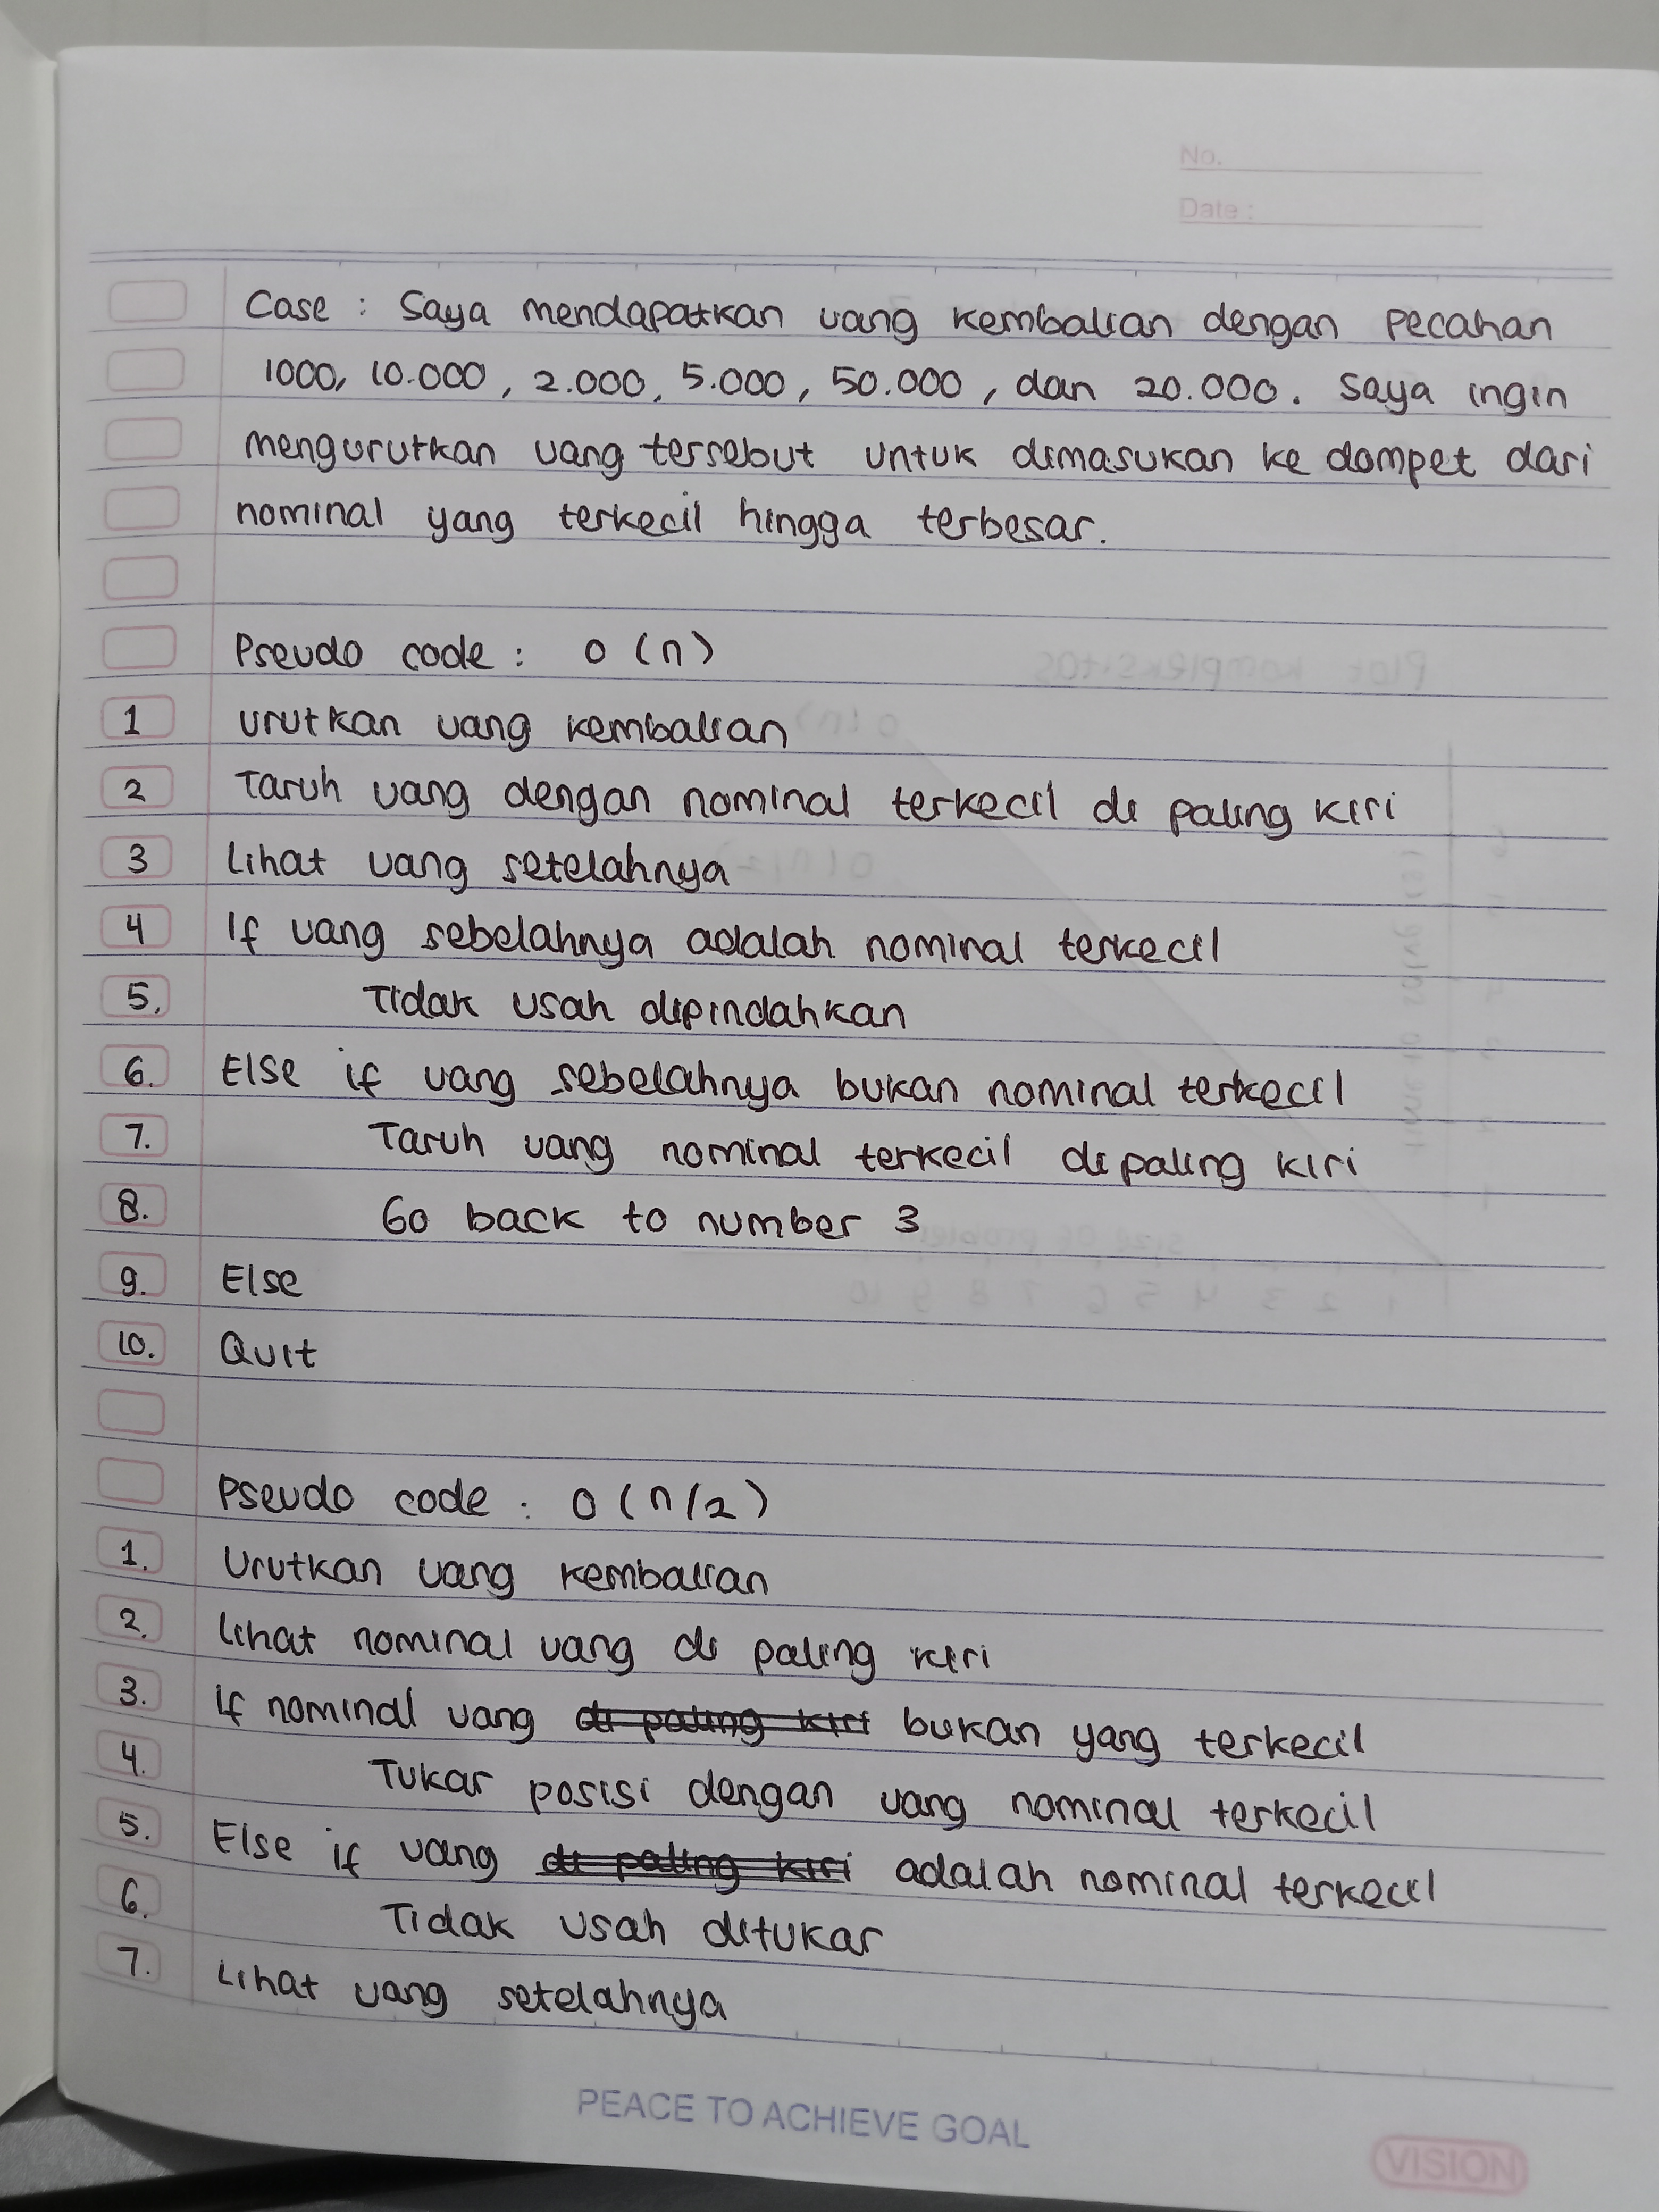 No.
Date :
Case : Saya mendapatkan uang kembalian dengan pecahan
1000, 10.000, 2.000, 5.000, 50.000, dan 20.000. Saya ingin
mengurutkan uang tersebut untuk dimasukan ke dompet dari
nominal yang terkecil hingga terbesar.
Pseudo code : O (n)
1 Urutkan uang kembalian
2 Taruh uang dengan nominal terkecil di paling kiri
3 Lihat uang setelahnya
4 If uang sebelahnya adalah nominal terkecil
5. Tidak usah dipindahkan
6. Else if uang sebelahnya bukan nominal terkecil
7. Taruh uang nominal terkecil di paling kiri
8. Go back to number 3
9. Else
10. Quit
Pseudo code : O (n/2)
1. Urutkan uang kembalian
2. Lihat nominal uang di paling kiri
3. If nominal uang di paling kiri bukan yang terkecil
4. Tukar posisi dengan uang nominal terkecil
5. Else if uang di paling kiri adalah nominal terkecil
6. Tidak usah ditukar
7. Lihat uang setelahnya
PEACE TO ACHIEVE GOAL
VISION